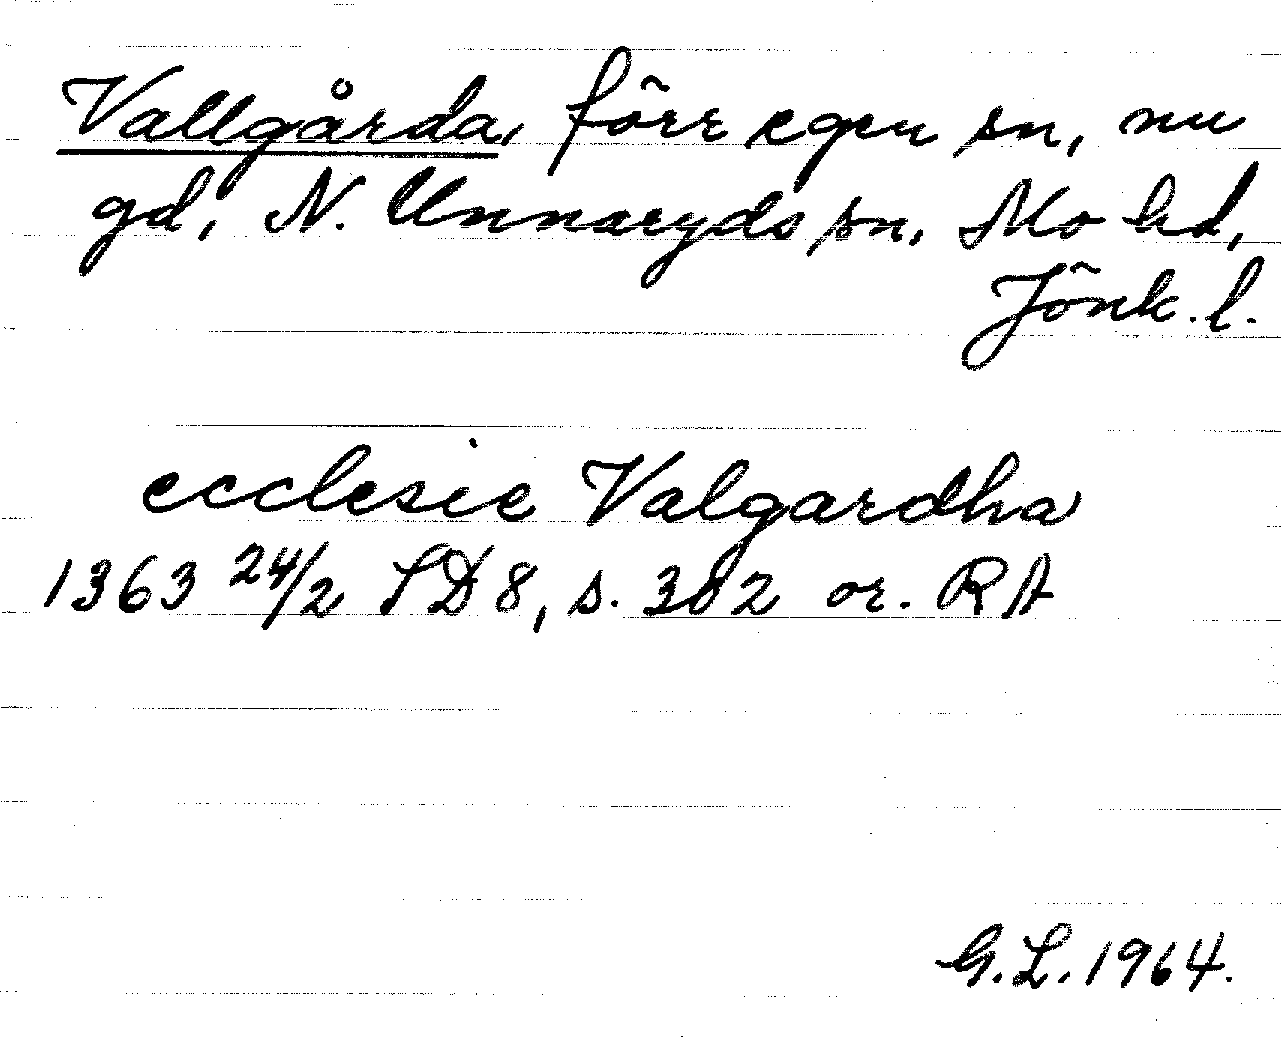 Vallgårda, förr egen sn, nu
gd, N. Unnaryds sn. Mo hd,
Jönk. l.
ecclesie Valgardha
1363 24/2 SD 8, s. 382 or. RA
G.L. 1964.